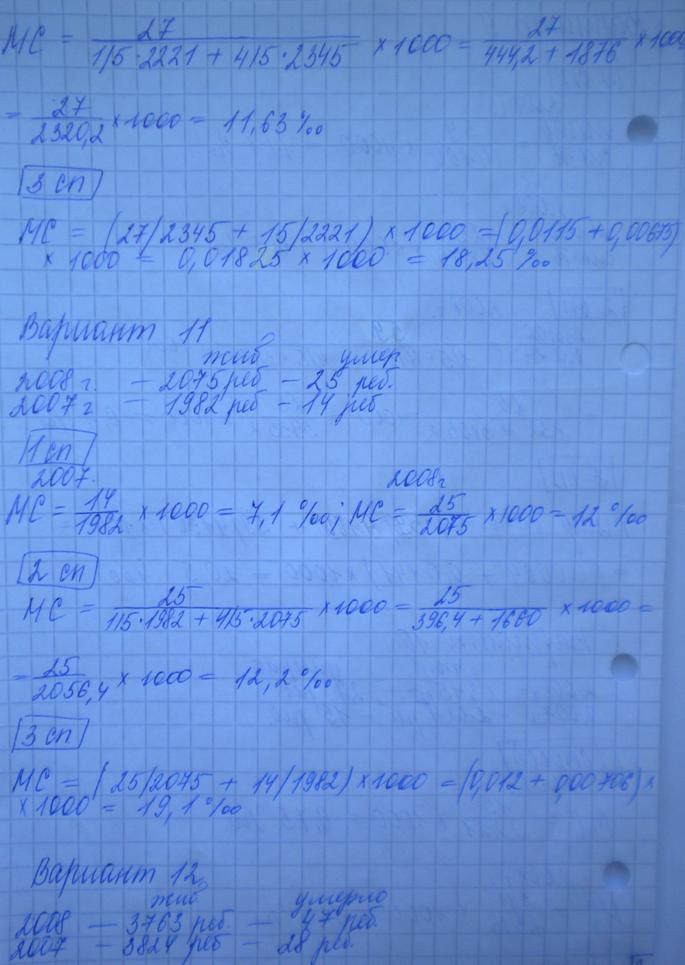 МС = 27 / (1/5·2221 + 4/5·2345) × 1000 = 27 / (444,2 + 1876) × 1000
= 27 / 2320,2 × 1000 = 11,63 ‰
3 сп
МС = (27/2345 + 15/2221) × 1000 = (0,0115 + 0,00675)
× 1000 = 0,01825 × 1000 = 18,25 ‰
Вариант 11
жив умер
2008 г. — 2075 реб — 25 реб.
2007 г — 1982 реб — 14 реб
1 сп
2007. 2008г
МС = 14 / 1982 × 1000 = 7,1 ‰; МС = 25 / 2075 × 1000 = 12 ‰
2 сп
МС = 25 / (1/5·1982 + 4/5·2075) × 1000 = 25 / (396,4 + 1660) × 1000 =
= 25 / 2056,4 × 1000 = 12,2 ‰
3 сп
МС = (25/2075 + 14/1982) × 1000 = (0,012 + 0,00706) ×
× 1000 = 19,1 ‰
Вариант 12
жив. умерло
2008 — 3763 реб. — 47 реб.
2007 — 3824 реб — 28 реб.